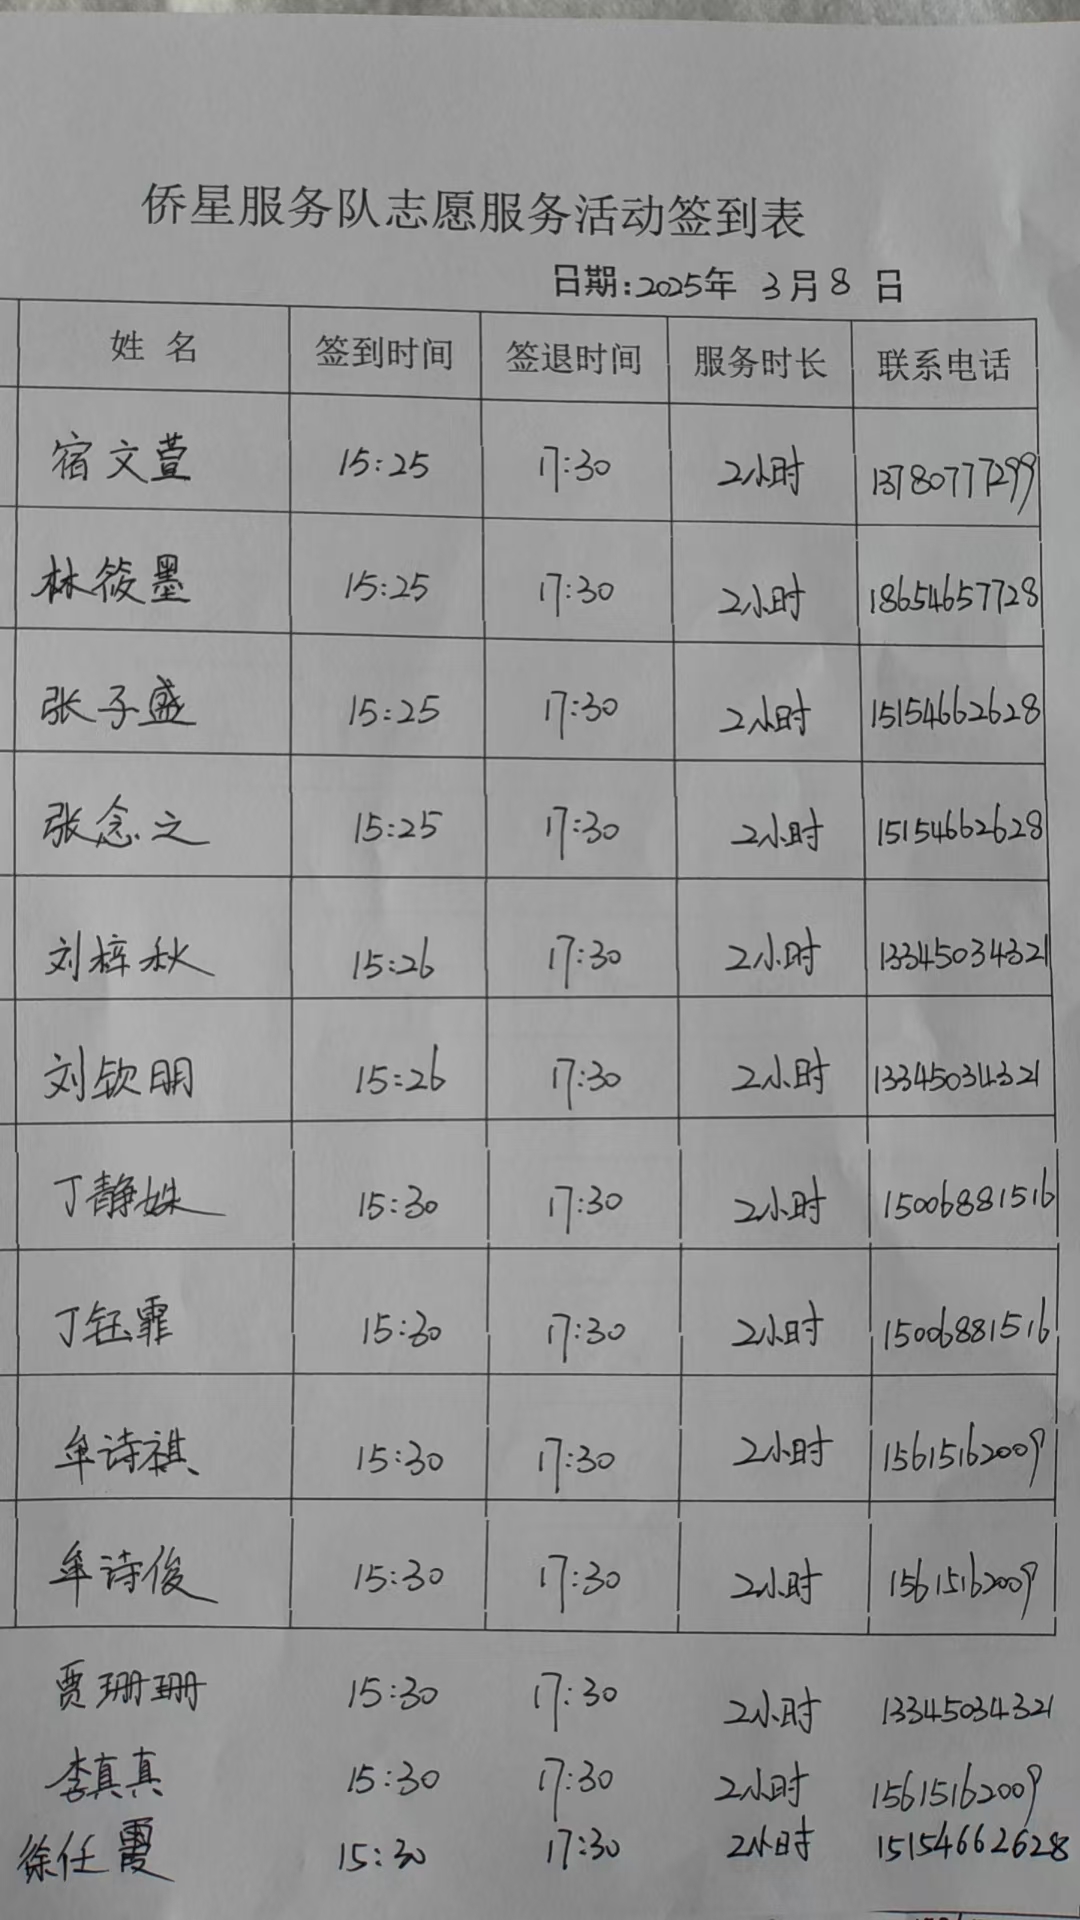 侨星服务队志愿服务活动签到表
日期:2025年 3月8日
姓名 签到时间 签退时间 服务时长 联系电话
宿文萱 15:25 17:30 2小时 13780777299
林筱墨 15:25 17:30 2小时 18654657728
张子盛 15:25 17:30 2小时 15154662628
张念之 15:25 17:30 2小时 15154662628
刘梓秋 15:26 17:30 2小时 13345034321
刘钦朋 15:26 17:30 2小时 13345034321
丁静姝 15:30 17:30 2小时 15006881516
丁钰霏 15:30 17:30 2小时 15006881516
牟诗祺 15:30 17:30 2小时 15615162009
牟诗俊 15:30 17:30 2小时 15615162009
贾珊珊 15:30 17:30 2小时 13345034321
李真真 15:30 17:30 2小时 15615162009
徐任霞 15:30 17:30 2小时 15154662628